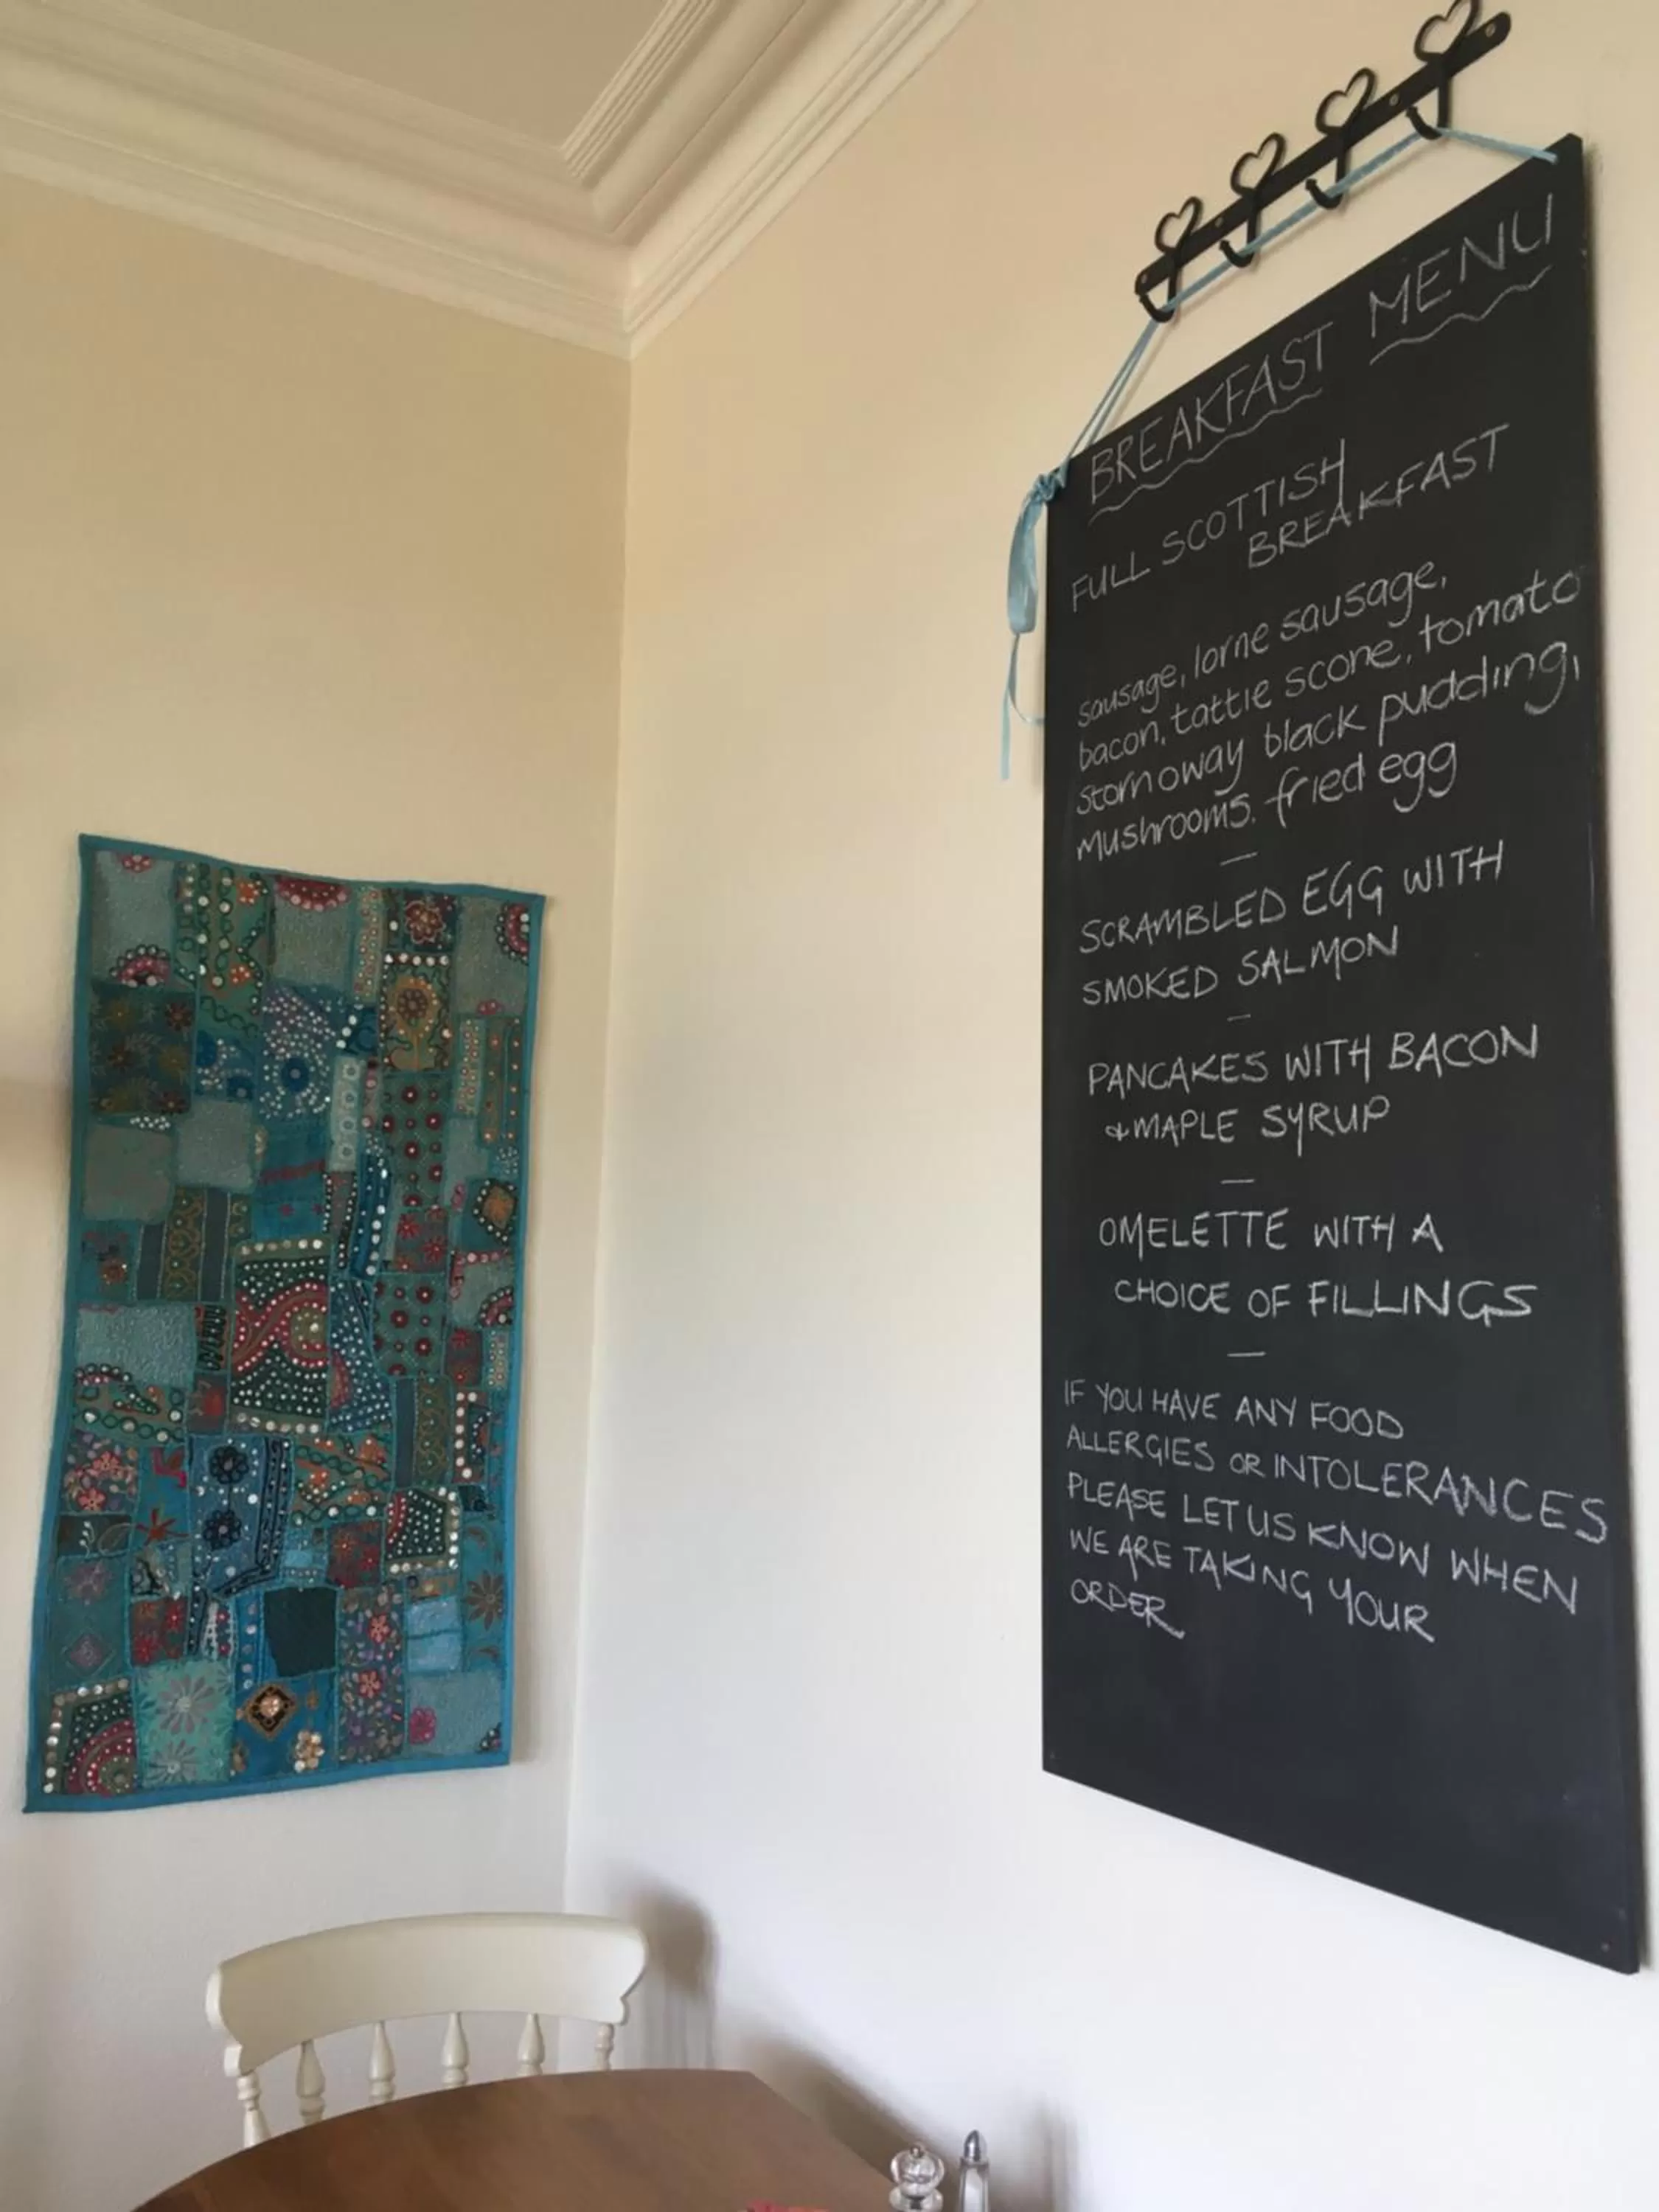 BREAKFAST MENU
FULL SCOTTISH
BREAKFAST
sausage, lorne sausage,
bacon, tattie scone, tomato
stornoway black pudding,
mushrooms. fried egg
—
SCRAMBLED EGG WITH
SMOKED SALMON
—
PANCAKES WITH BACON
& MAPLE SYRUP
—
OMELETTE WITH A
CHOICE OF FILLINGS
—
IF YOU HAVE ANY FOOD
ALLERGIES OR INTOLERANCES
PLEASE LET US KNOW WHEN
WE ARE TAKING YOUR
ORDER